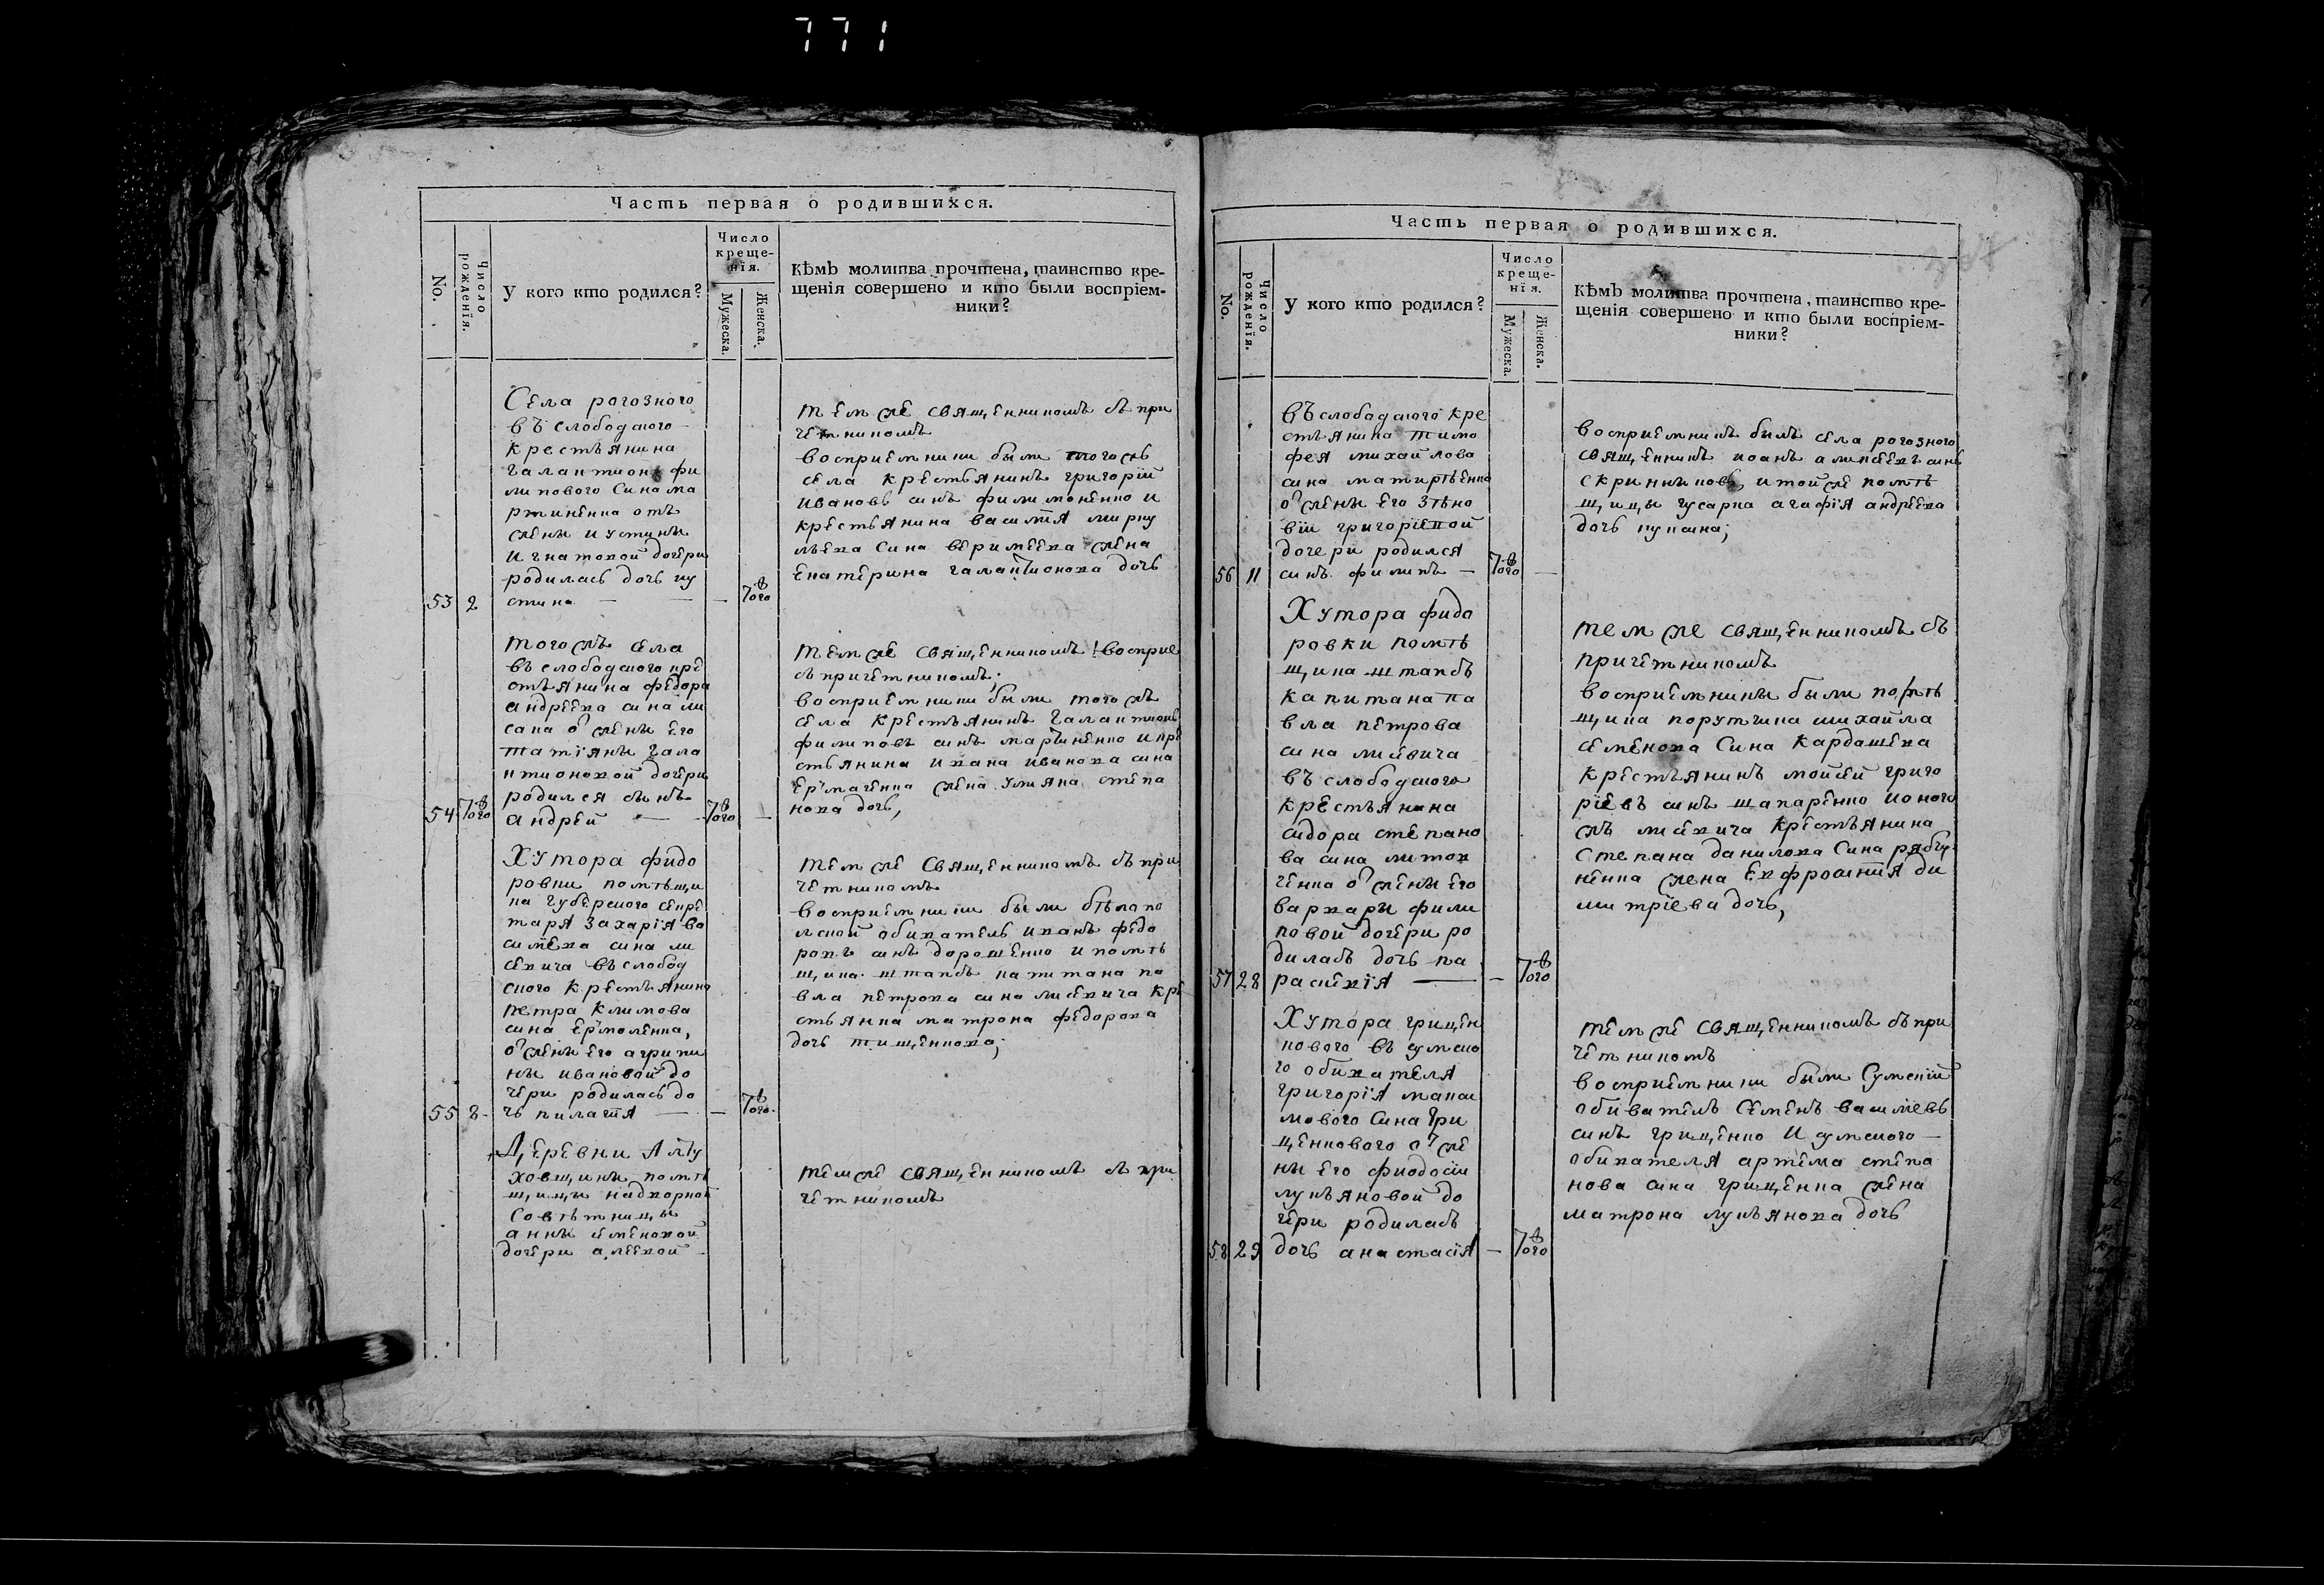 771
Часть первая о родившихся.
No.
Число рожденїя.
У кого кто родился?
Число
креще-
нїя.
Мужеска.
Женска.
Кѣмъ молитва прочтена, таинство кре-
щенїя совершено и кто были воспрїем-
ники?
Села рогозного
въ слободского
крестьянина
галактиона фи
липового сина ма
ртиненка отъ
жены иустины
игнатовой дочери
родилась дочь иу
53 2 стина — — — тогож
тем же священникомъ съ при
четникомъ
восприемники были тогожъ
села крестьянинъ григорїй
ивановъ синъ филимоненко и
крестьянина василїя
сина веримеева жена
екатерина галактионова дочь
тогожъ села
въ слободского кре
стьянина федора
андреева сина ли
сака о͛ жены его
татїяны гала
ктионовой дочери
родился сынъ
54 тогож андрей — тогож —
тем же священникомъ восприе
съ причетникомъ;
восприемники были тогожъ
села крестьянинъ галактионъ
филиповъ синъ мартиненко и кре
стьянина ивана иванова сина
ермаченка жена улияна степа
нова дочь,
Хутора фидо
ровки помѣщи
ка губерского секре
таря захарїя ва
силїева сина ли
севича въ слобод
ского крестьянина
петра климова
сина ермоленка,
о͛ жены его агрипи
ны ивановой до
чери родилась до
55 8 чь пилагїя — — тогож
тем же священникомъ съ при
четникомъ
восприемники были бѣлопо
лской обиватель иванъ федо
ровъ синъ дорошенко и помѣ
щика штапсъ капитана па
вла петрова сина лисевича кре
стьянка матрона федорова
дочь тищенкова;
Деревни Алту
ховщины помѣ
щицы надворной
совѣтницы
анны семеновой
дочери алеевой
тем же священникомъ съ при
четникомъ
Часть первая о родившихся.
No.
Число рожденїя.
У кого кто родился?
Число
креще-
нїя.
Мужеска.
Женска.
Кѣмъ молитва прочтена, таинство кре-
щенїя совершено и кто были воспрїем-
ники?
въ слободского кре
стьянина тимо
фея михайлова
сина матвѣенка
о͛ жены его зѣно
вїи григорїевой
дочери родился
56 11 синъ филипъ — тогож —
восприемникъ билъ села рогозного
священникъ иоанъ алексеевъ синъ
скринниковъ, и той же помѣ
щицы гусарка агафїя андреева
дочь купсина;
Хутора фидо
ровки помѣ
щика штапсъ
капитана па
вла петрова
сина лисевича
въ слободского
крестьянина
сидора степано
ва сина литов
ченка о͛ жены его
варвары фили
повой дочери ро
дилась дочь па
57 28 раскевїя — — тогож
тем же священникомъ съ
причетникомъ
восприемники были помѣ
щика порутчика михайла
семенова сина кардашева
крестьянинъ мойсей григо
рїевъ синъ шапаренко и оного
жъ лисевича крестьянина
степана данилова сина рябчу
ненка жена евфросинїя ди
митрїева дочь,
Хутора грищен
кового въ сумско
го обивателя
григорїя макси
мового сина гри
щенкового о͛ же
ны его фиодосии
лукьяновой до
чери родилась
58 29 дочь анастасїя — тогож
тем же священникомъ съ при
четникомъ
восприемники были сумскїй
обиватель семенъ василїевъ
синъ грищенко и сумского
обивателя артема степа
нова сина грищенка жена
матрона лукьянова дочь